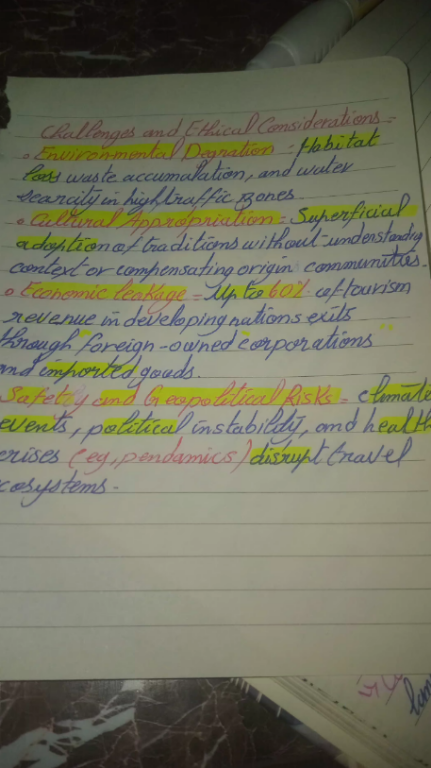 Challenges and Ethical Considerations =
• Environmental Degration = Habitat
loss waste accumalation, and water
scarcity in high traffic zones
• Cultural Appropriation = Superficial
adoption of traditions without understanding
context or compensating origin communities.
• Economic leakage = Up to 60% of tourism
revenue in developing nations exits
through foreign-owned corporations
and imported goods.
Safety and Geopolitical Risks = climate
events, political instability, and health
crises (eg, pendamics) disrupt travel
cosystems.